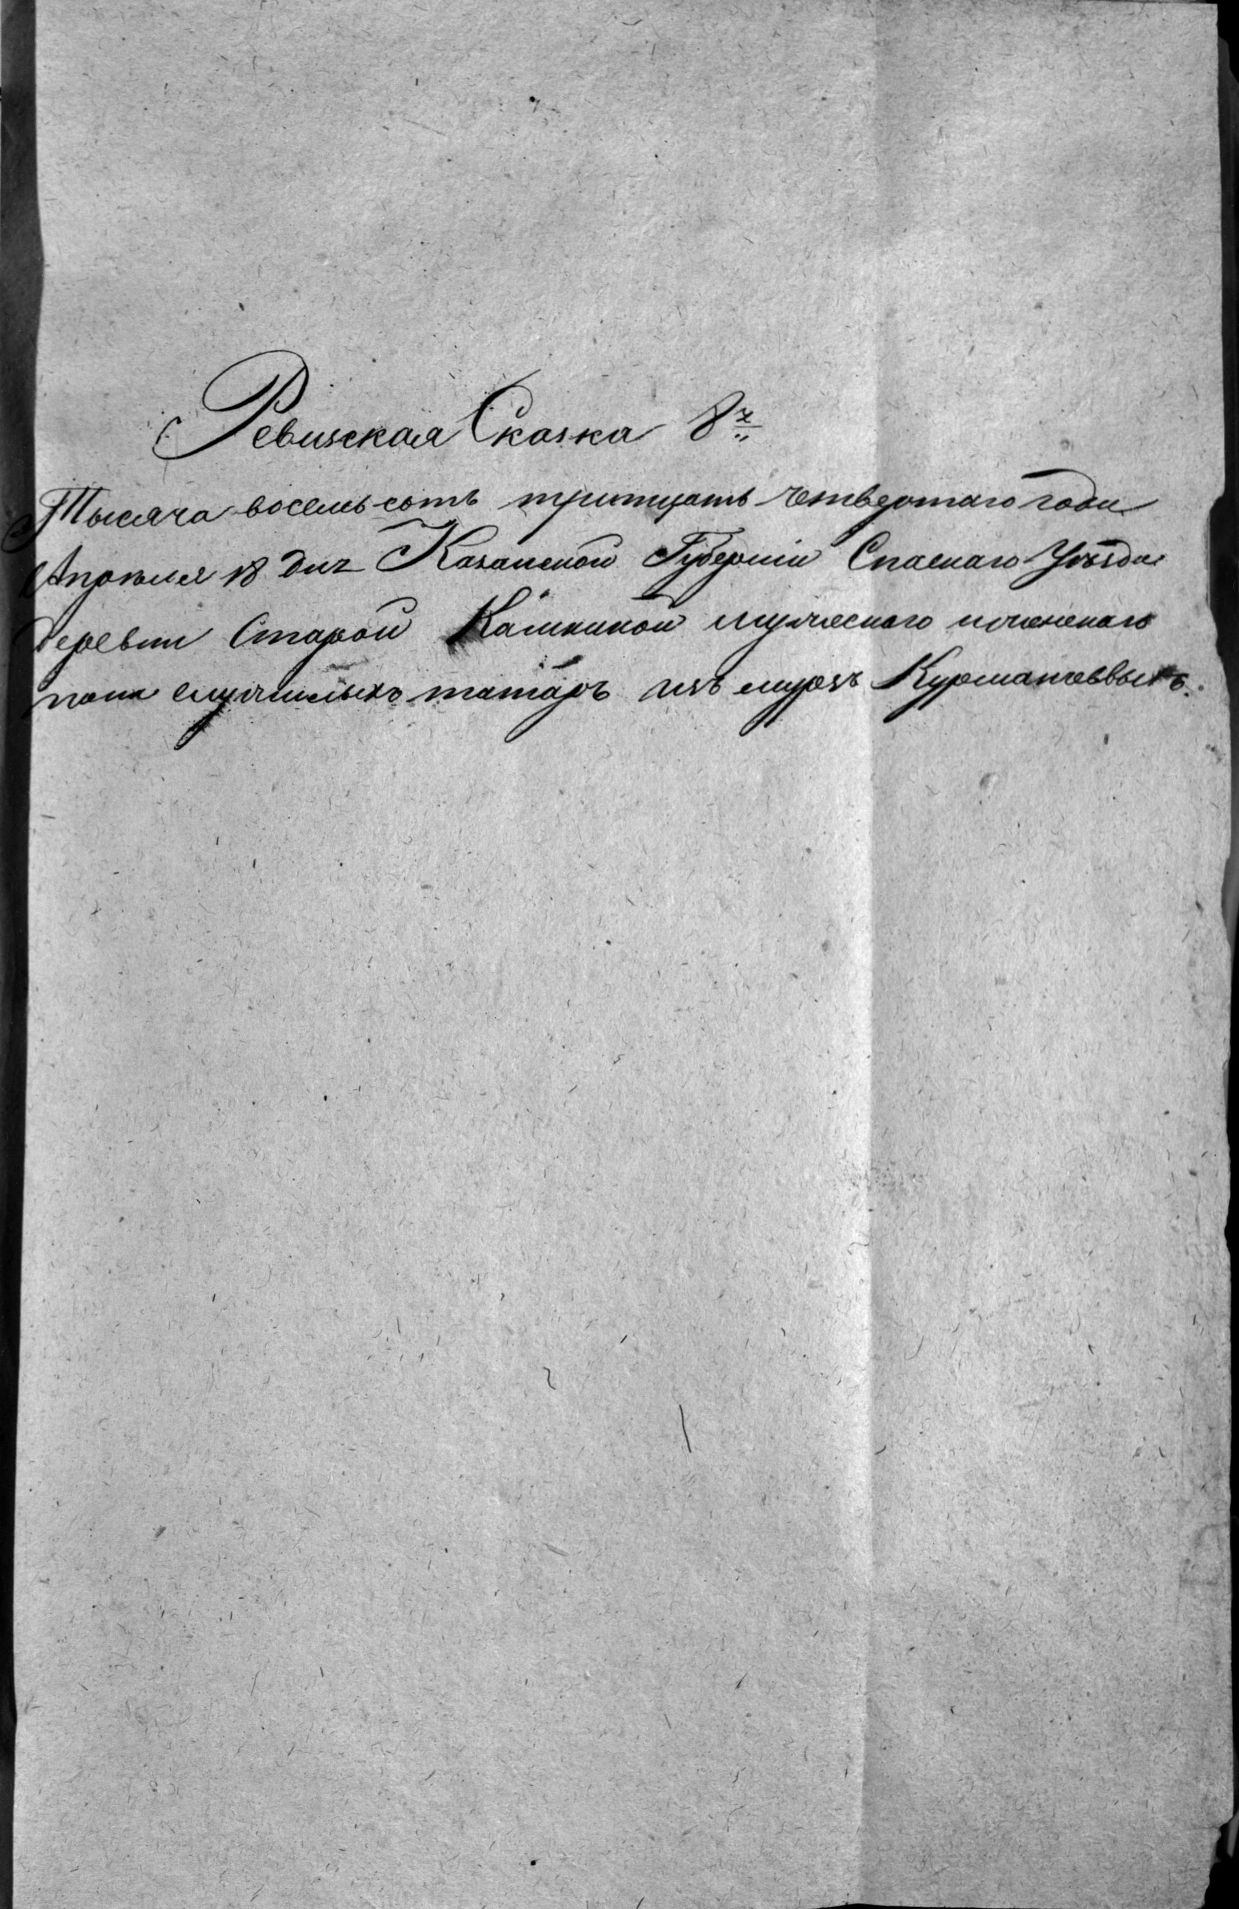 Ревизская Сказка 8я
Тысяча восемь сотъ тритцать четвертаго года
Апреля 18 дня Казанской Губерніи Спаскаго Уѣзда
деревни Старой Камкиной мужескаго и женскаго
пола служилыхъ татаръ изъ мурзъ Курмашеввыхъ.